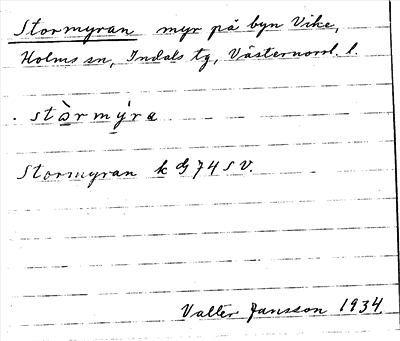 Stormyran myr på byn Vike,
Holms sn, Indals tg, Västernorrl. l.
. stòrmýra
Stormyran k G 74 S V.
Valter Jansson 1934